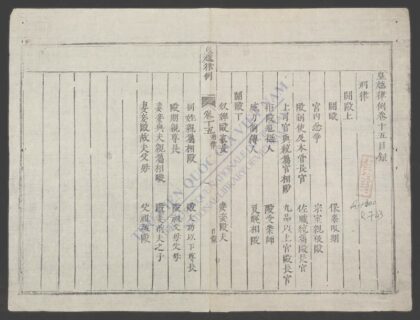 皇越律例卷十五目錄
刑律
鬬毆上
鬬毆 保辜限期
宮內忿爭 宗室親被毆
毆制使及本管長官 佐職統屬毆長官
上司官與統屬官相毆 九品以上官毆長官
拒毆追攝人 毆受業師
威力制縛人 良賤相毆
鬬毆下
奴婢毆家長 妻妾毆夫
皇越律例 卷十五
同姓親屬相毆 毆大功以下尊長
毆期親尊長 毆祖父母父母
妻妾與夫親屬相毆 毆妻前夫之子
妻妾毆故夫父母 父祖被毆